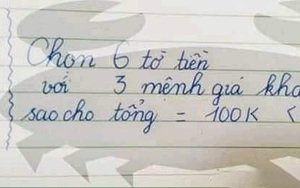 Chọn 6 tờ tiền
với 3 mệnh giá
sao cho tổng = 100K <